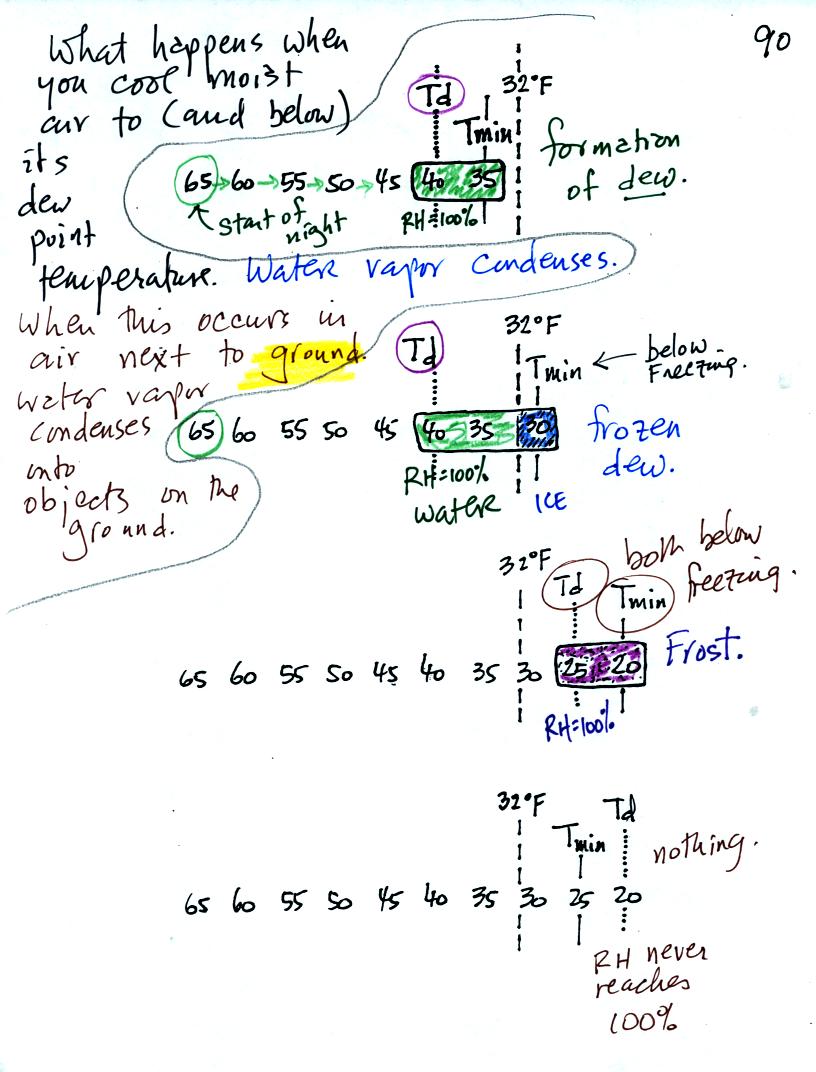 90
What happens when
you cool moist
air to (and below)
its
dew
point
temperature. Water vapor condenses.
Td
32°F
Tmin
65→60→55→50→45 40 35
Start of
night
RH=100%
formation
of dew.
When this occurs in
air next to ground.
water vapor
condenses
onto
objects on the
ground.
32°F
Td
Tmin ← below
Freezing.
65 60 55 50 45 40 35 30
frozen
dew.
RH=100%
water
ICE
32°F
Td
Tmin
both below
freezing.
65 60 55 50 45 40 35 30 25 20
Frost.
RH=100%
32°F
Td
Tmin
nothing.
65 60 55 50 45 40 35 30 25 20
RH never
reaches
100%